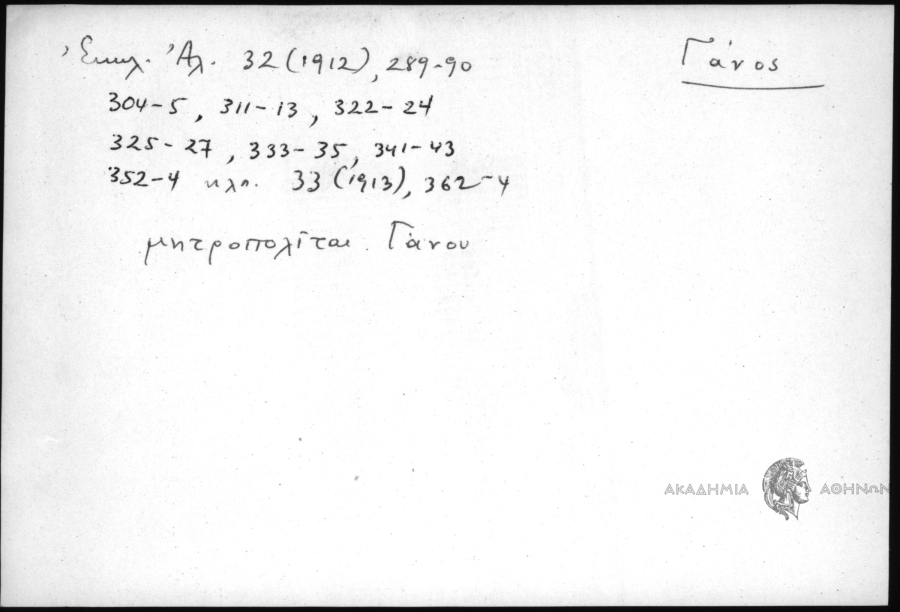 Γάνος
Ἐκκλ. Ἀλ. 32 (1912), 289-90
304-5, 311-13, 322-24
325-27, 333-35, 341-43
352-4 κλπ. 33 (1913), 362-4
μητροπολῖται Γάνου
ΑΚΑΔΗΜΙΑ ΑΘΗΝΩΝ